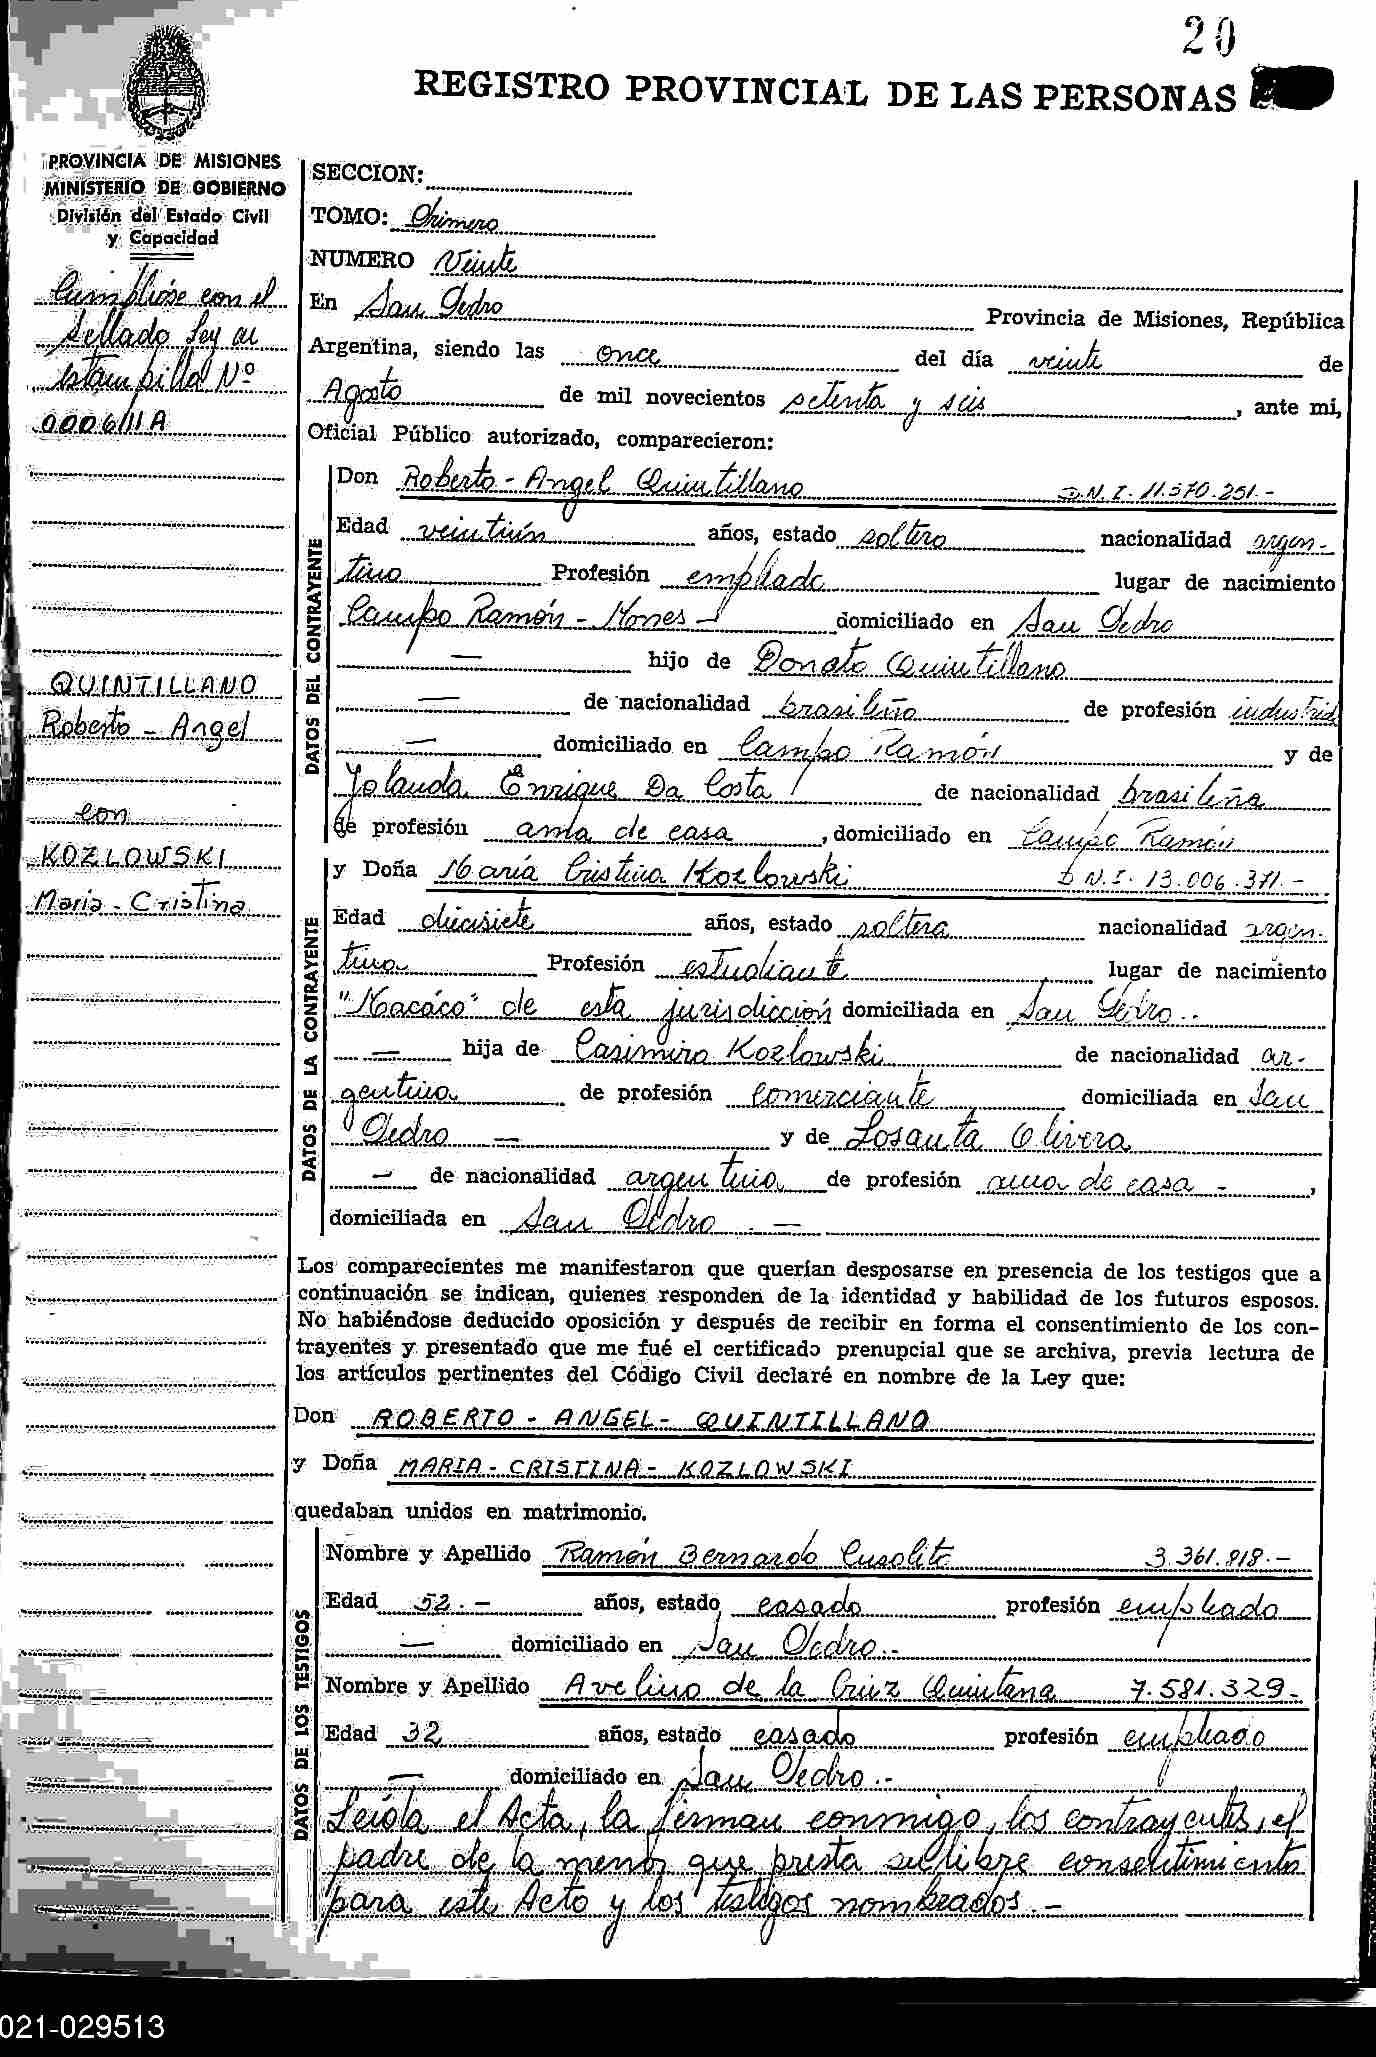 20
REGISTRO PROVINCIAL DE LAS PERSONAS
PROVINCIA DE MISIONES
MINISTERIO DE GOBIERNO
División del Estado Civil
y Capacidad
Cumplióse con el
sellado Ley en
estampilla Nº
0006111A
QUINTILLANO
Roberto - Angel
con
KOZLOWSKI
Maria - Cristina
SECCION:
TOMO: Primero
NUMERO Veinte
En San Pedro Provincia de Misiones, República
Argentina, siendo las once del día veinte de
Agosto de mil novecientos setenta y seis, ante mí,
Oficial Público autorizado, comparecieron:
DATOS DEL CONTRAYENTE
Don Roberto - Angel Quintillano D.N.I. 11.570.251.-
Edad veintiún años, estado soltero nacionalidad argen-
tino Profesión empleado lugar de nacimiento
Campo Ramón - Mnes - domiciliado en San Pedro
— hijo de Donato Quintillano
— de nacionalidad brasileño de profesión industrial
— domiciliado en Campo Ramón y de
Yolanda Enrique Da Costa de nacionalidad brasileña
de profesión ama de casa, domiciliado en Campo Ramón
DATOS DE LA CONTRAYENTE
y Doña María Cristina Kozlowski D.N.I. 13.006.371.-
Edad diecisiete años, estado soltera nacionalidad argen-
tina Profesión estudiante lugar de nacimiento
"Macaco" de esta jurisdicción domiciliada en San Pedro.-
— hija de Casimiro Kozlowski de nacionalidad ar-
gentina de profesión comerciante domiciliada en San
Pedro — y de Losanta Olivera
— de nacionalidad argentina de profesión ama de casa -,
domiciliada en San Pedro . —
Los comparecientes me manifestaron que querían desposarse en presencia de los testigos que a
continuación se indican, quienes responden de la identidad y habilidad de los futuros esposos.
No habiéndose deducido oposición y después de recibir en forma el consentimiento de los con-
trayentes y presentado que me fué el certificado prenupcial que se archiva, previa lectura de
los artículos pertinentes del Código Civil declaré en nombre de la Ley que:
Don ROBERTO - ANGEL - QUINTILLANO
y Doña MARIA - CRISTINA - KOZLOWSKI
quedaban unidos en matrimonio.
DATOS DE LOS TESTIGOS
Nombre y Apellido Ramón Bernardo Cusolito 3.361.818.-
Edad 52.- años, estado casado profesión empleado
— domiciliado en San Pedro.-
Nombre y Apellido Avelino de la Cruz Quintana 7.581.329-
Edad 32 años, estado casado profesión empleado
— domiciliado en San Pedro.-
Leída el Acta, la firman conmigo, los contrayentes, el
padre de la menor que presta su libre consentimiento
para este Acto y los testigos nombrados.-
021-029513